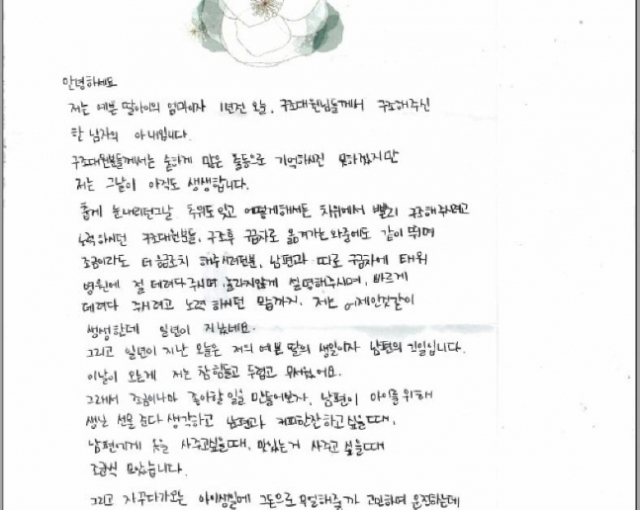 안녕하세요
저는 예쁜 딸아이의 엄마이자 1년전 오늘, 구조대원님들께서 구조해주신
한 남자의 아내입니다.
구조대원분들께서는 숱하게 많은 출동으로 기억하시진 못하겠지만
저는 그날이 아직도 생생합니다.
춥게 눈내리던그날 추위도잊고 어떻게해서든 차위에서 빨리 구조해주시려고
노력하시던 구조대원분들, 구조후 구급차로 옮겨가는 와중에도 같이 뛰며
조금이라도 더 응급조치 해주시려던분, 남편과 따로 구급차에 태워
병원에 절 데려다주시며 놀라지않게 설명해주시며, 바르게
데려다 주시려고 노력하시던 모습까지. 저는 어제인것같이
생생한데 일년이 지났네요.
그리고 일년이 지난 오늘은 저의 예쁜 딸의 생일이자 남편의 기일입니다.
이날이 오는게 저는 참 힘들고 두렵고 무서웠어요.
그래서 조금이나마 좋아할 일을 만들어보자, 남편이 아이를 위해
생일 선물 준다 생각하고 남편과 커피한잔하고 싶을때,
남편에게 옷을 사주고싶을때, 맛있는거 사주고 싶을때
조금씩 모았습니다.
그리고 자꾸다가오는 아이생일에 그돈으로 무얼해줄까 고민하며 운전하는데